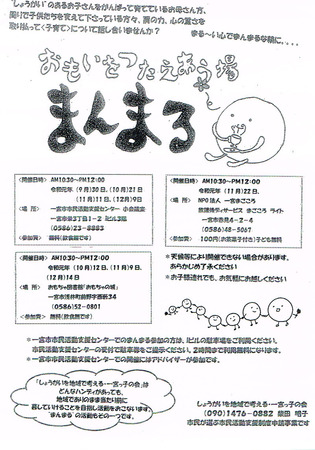 "しょうがい"のあるお子さんをがんばって育てているお母さん方、
周りで子供たちを支えて下さっている方々、肩の力、心の重さを
取り払って<子育て>について話し合いませんか？
まる〜い心でまんまるな輪に．．．．
おもいをつたえあう場
まんまる
<開催日時> AM10:30〜PM12:00
令和元年 (9月30日、(10月21日
(11月11日、(12月9日
<場 所> 一宮市市民活動支援センター 小会議室
一宮市栄3丁目1－2 ビル3階
(0586)23-8883
<参加費> 無料(飲食無です)
<開催日時> AM10:30〜PM12:00
令和元年 (11月22日、
<場 所> NPO法人 一宮まごころ
放課後デイサービス まごころ ライト
一宮市赤見4－2－4
(0586)48-5067
<参加費> 100円(お茶菓子付き)子ども無料
<開催日時> AM10:30〜PM12:00
令和元年 (10月12日、(11月9日、
(12月14日
<場 所> おもちゃ図書館「おもちゃの城」
一宮市浅井町前野字西新34
(0586)52-0801
<参加費> 無料(飲食無です)
＊天候等により開催できない場合があります。
あらかじめ了承ください
＊お子様連れでも、お気軽にお越しください
＊一宮市市民活動支援センターでのまんまる参加の方は、iビルの駐車場をご利用ください。
市民活動支援センターの受付で駐車券をご提示ください。2時間まで利用無料になります。
＊一宮市市民活動支援センターでの開催にはアドバイザーが参加です。
「しょうがいを地域で考える・一宮っ子の会」は
どんなハンディがあっても、
地域でありのまま当たり前に
暮していけることを目指し活動をおこないます。
"まんまる"の活動もその一つです。
しょうがいを地域で考える・一宮っ子の会
(090)1476-0882 柴田 明子
市民が選ぶ市民活動支援制度申請事業です